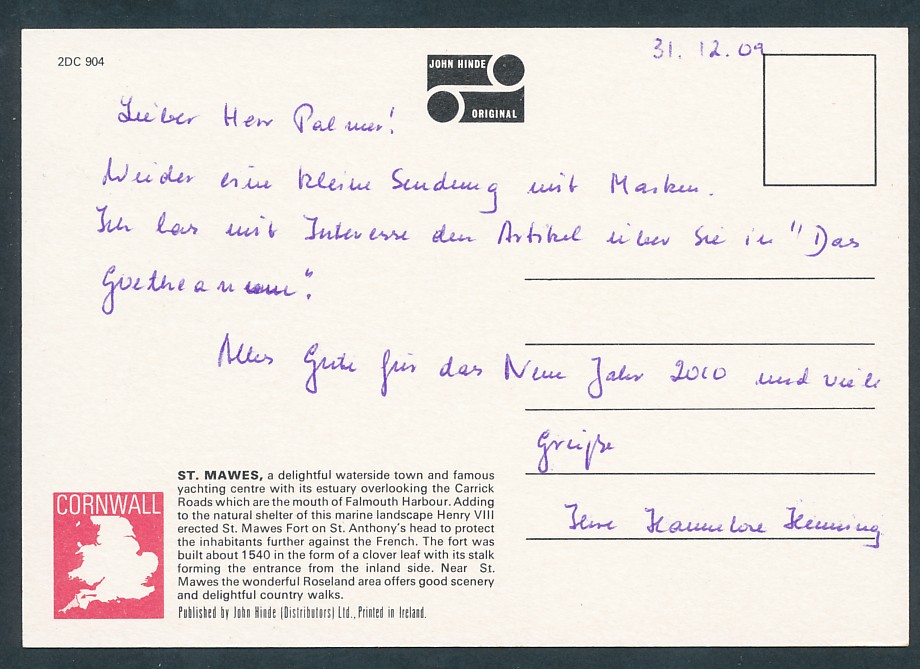 31. 12. 09
2DC 904
JOHN HINDE
ORIGINAL
Lieber Herr Palmer!
Wieder eine kleine Sendung mit Marken.
Ich las mit Interesse den Artikel über Sie in "Das
Goetheanum".
Alles Gute für das Neue Jahr 2010 und viele
Grüße
Ihre Hannelore Henning
CORNWALL
ST. MAWES, a delightful waterside town and famous
yachting centre with its estuary overlooking the Carrick
Roads which are the mouth of Falmouth Harbour. Adding
to the natural shelter of this marine landscape Henry VIII
erected St. Mawes Fort on St. Anthony's head to protect
the inhabitants further against the French. The fort was
built about 1540 in the form of a clover leaf with its stalk
forming the entrance from the inland side. Near St.
Mawes the wonderful Roseland area offers good scenery
and delightful country walks.
Published by John Hinde (Distributors) Ltd., Printed in Ireland.